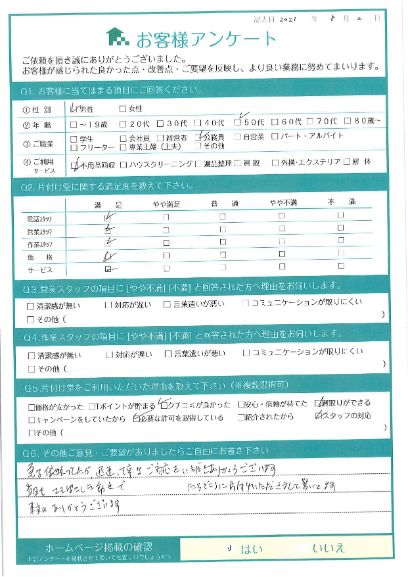 記入日 2021 年 8 月 2 日
お客様アンケート
ご依頼を頂き誠にありがとうございました。
お客様が感じられた良かった点・改善点・ご要望を反映し、より良い業務に努めてまいります。
Q1. お客様に当てはまる項目にご回答ください。
①性 別 □男性 □女性
②年 齢 □～19歳 □20代 □30代 □40代 □50代 □60代 □70代 □80歳～
③ご職業 □学生 □会社員 □経営者 □公務員 □自営業 □パート・アルバイト
□フリーター □専業主婦(主夫) □その他
④ご利用サービス □不用品回収 □ハウスクリーニング □遺品整理 □買取 □外構・エクステリア □解体
Q2. 片付け堂に関する満足度を教えて下さい。
満 足 やや満足 普 通 やや不満 不 満
電話スタッフ □ □ □ □ □
営業スタッフ □ □ □ □ □
作業スタッフ □ □ □ □ □
価 格 □ □ □ □ □
サービス □ □ □ □ □
Q3. 営業スタッフの項目に [やや不満] [不満] と回答された方へ理由をお伺いします。
□清潔感が無い □対応が遅い □言葉遣いが悪い □コミュニケーションが取りにくい
□その他 ( )
Q4. 作業スタッフの項目に [やや不満] [不満] と回答された方へ理由をお伺いします。
□清潔感が無い □対応が遅い □言葉遣いが悪い □コミュニケーションが取りにくい
□その他 ( )
Q5. 片付け堂をご利用いただいた理由を教えて下さい (※複数選択可)
□価格が安かった □Tポイントが貯まる □クチコミが良かった □安心・信頼が持てた □買取りができる
□キャンペーンをしていた □必要な許可を取得している □紹介されたから □スタッフの対応
□その他 ( )
Q6. その他ご意見・ご要望がありましたらご自由にお書き下さい
ご対応 ありがとうございます
ありがとうございます
ホームページ掲載の確認
はい いいえ